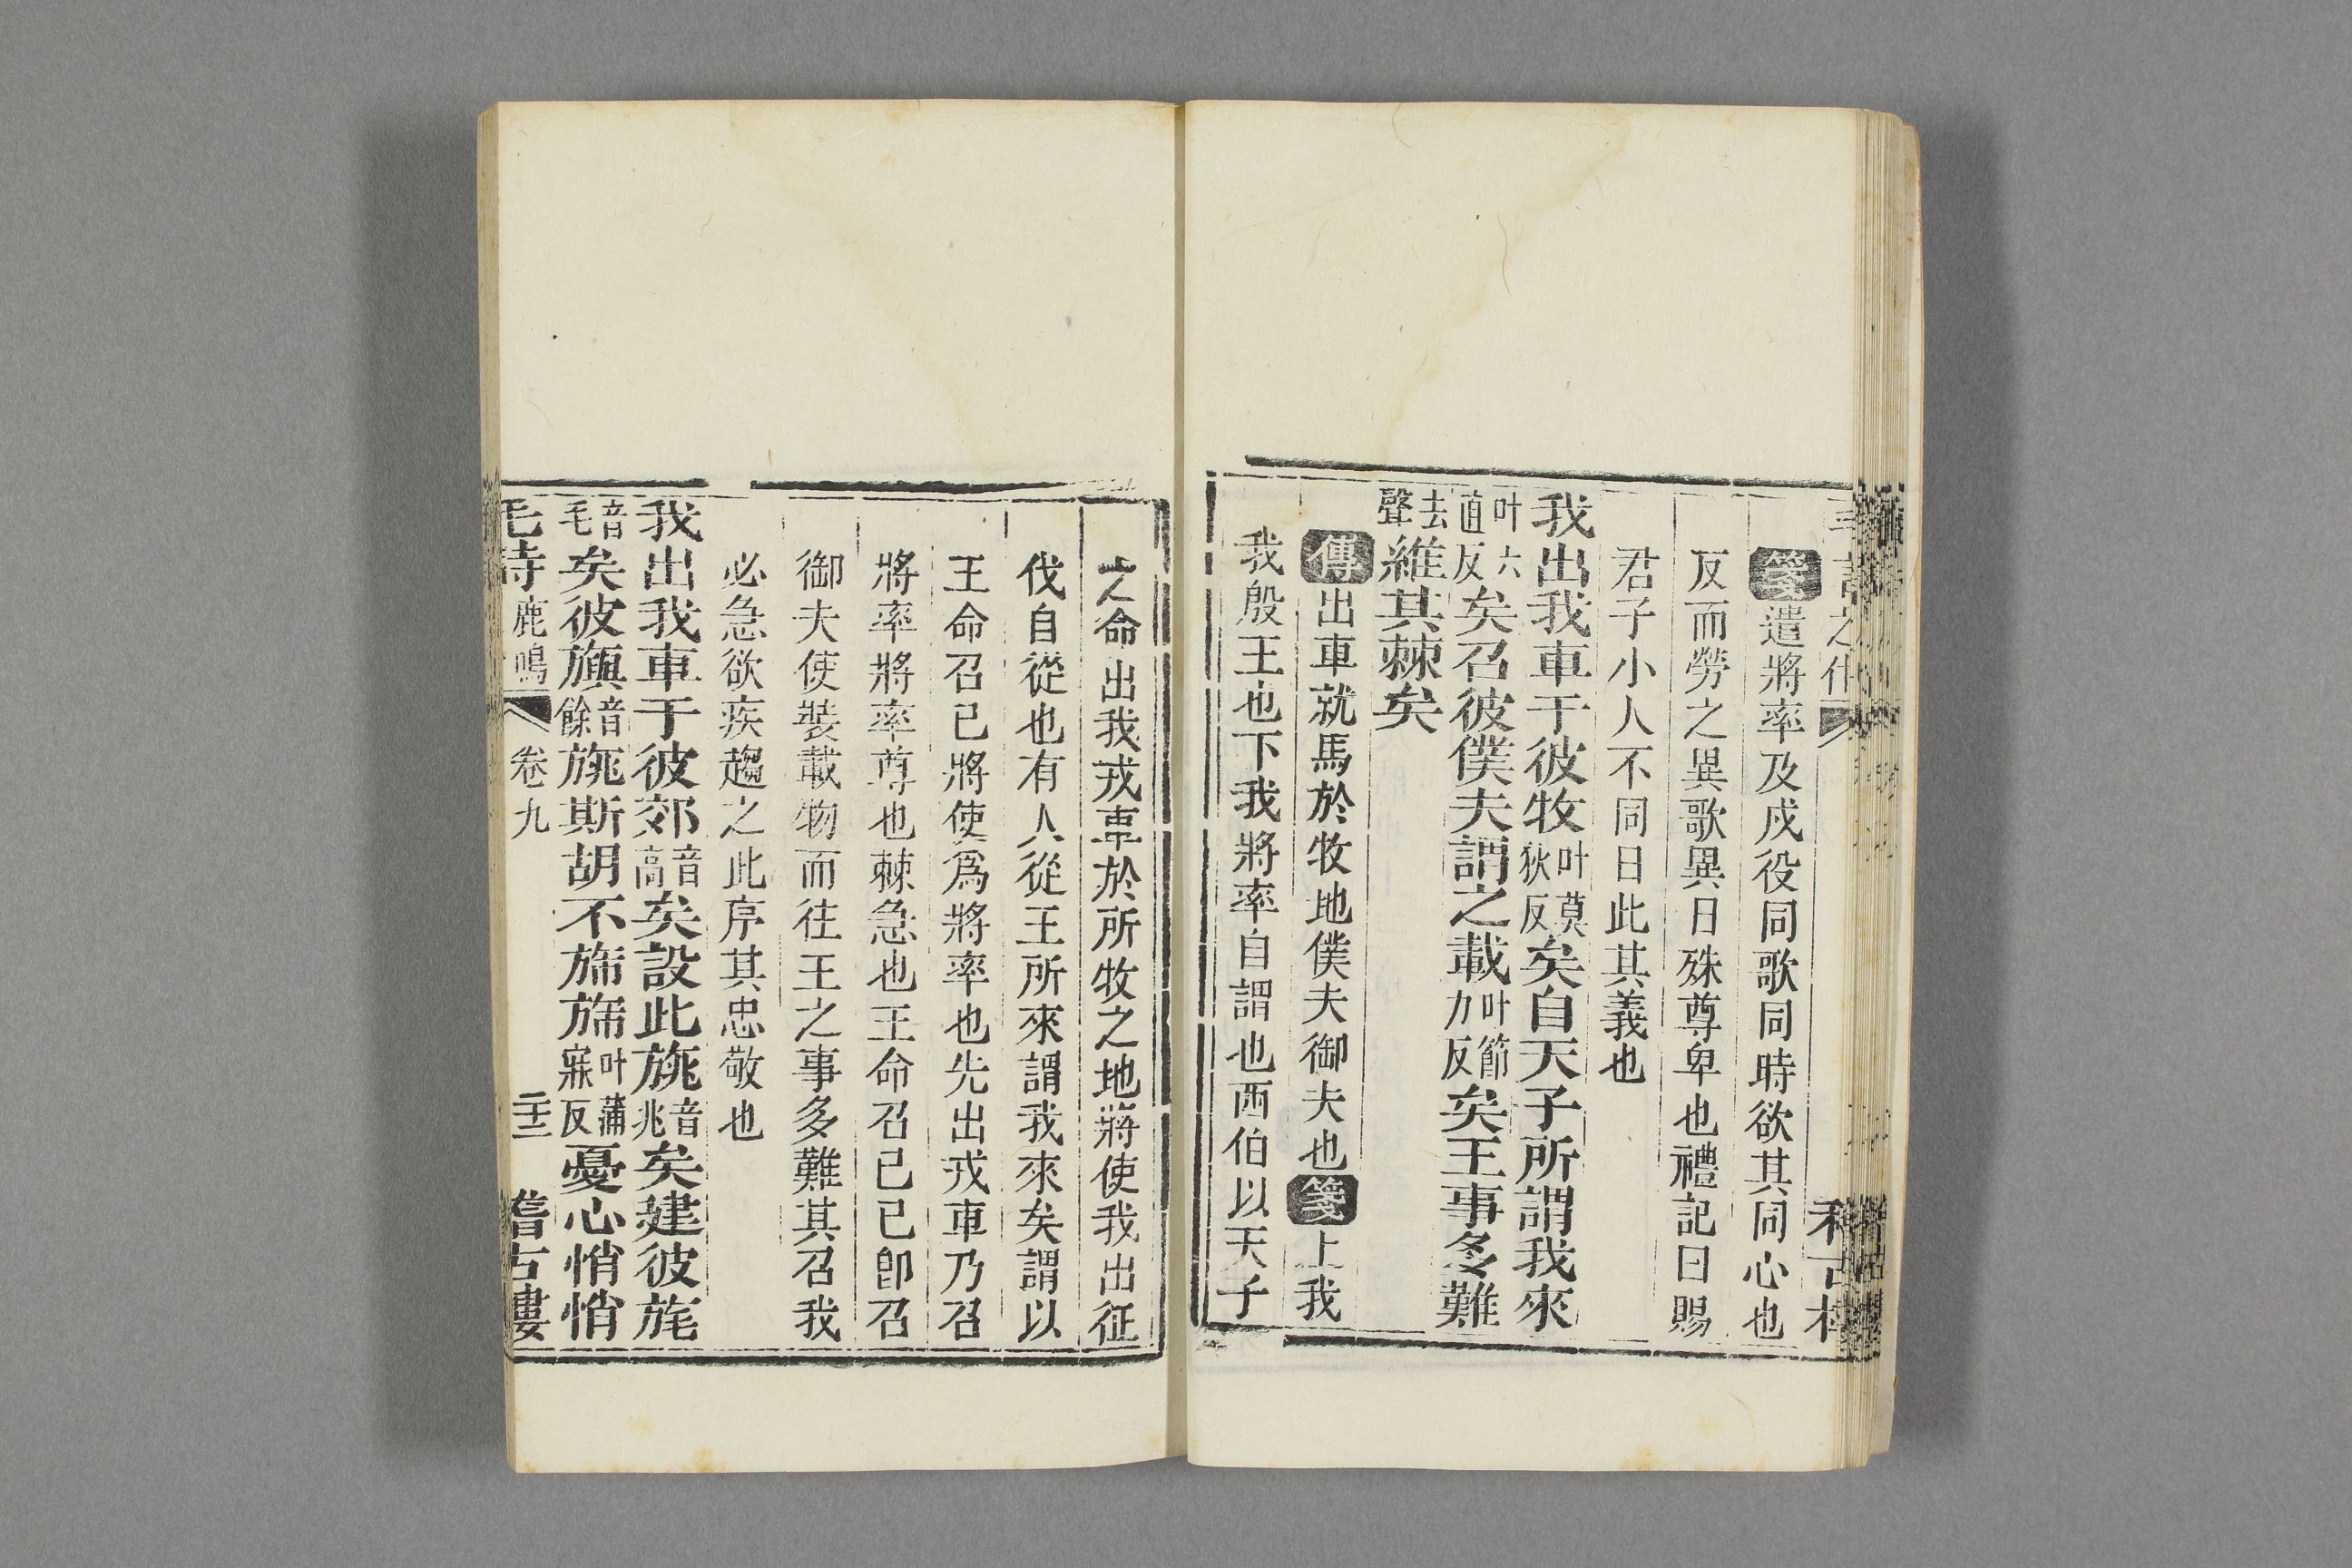 箋遣將率及戍役同歌同時欲其同心也
反而勞之異歌異日殊尊卑也禮記曰賜
君子小人不同日此其義也
我出我車于彼牧叶莫狄反矣自天子所謂我來
叶六直反矣召彼僕夫謂之載叶節力反矣王事多難
去聲維其棘矣
傳出車就馬於牧地僕夫御夫也箋上我
我殷王也下我將率自謂也西伯以天子
之命出我戎車於所牧之地將使我出征
伐自從也有人從王所來謂我來矣謂以
王命召已將使爲將率也先出戎車乃召
將率將率尊也棘急也王命召已已卽召
御夫使裝載物而往王之事多難其召我
必急欲疾趨之此序其忠敬也
我出我車于彼郊音高矣設此旐音兆矣建彼旄
音毛矣彼旟音餘旐斯胡不旆旆叶蒲寐反憂心悄悄
毛詩鹿鳴 卷九 二十三 耆古樓